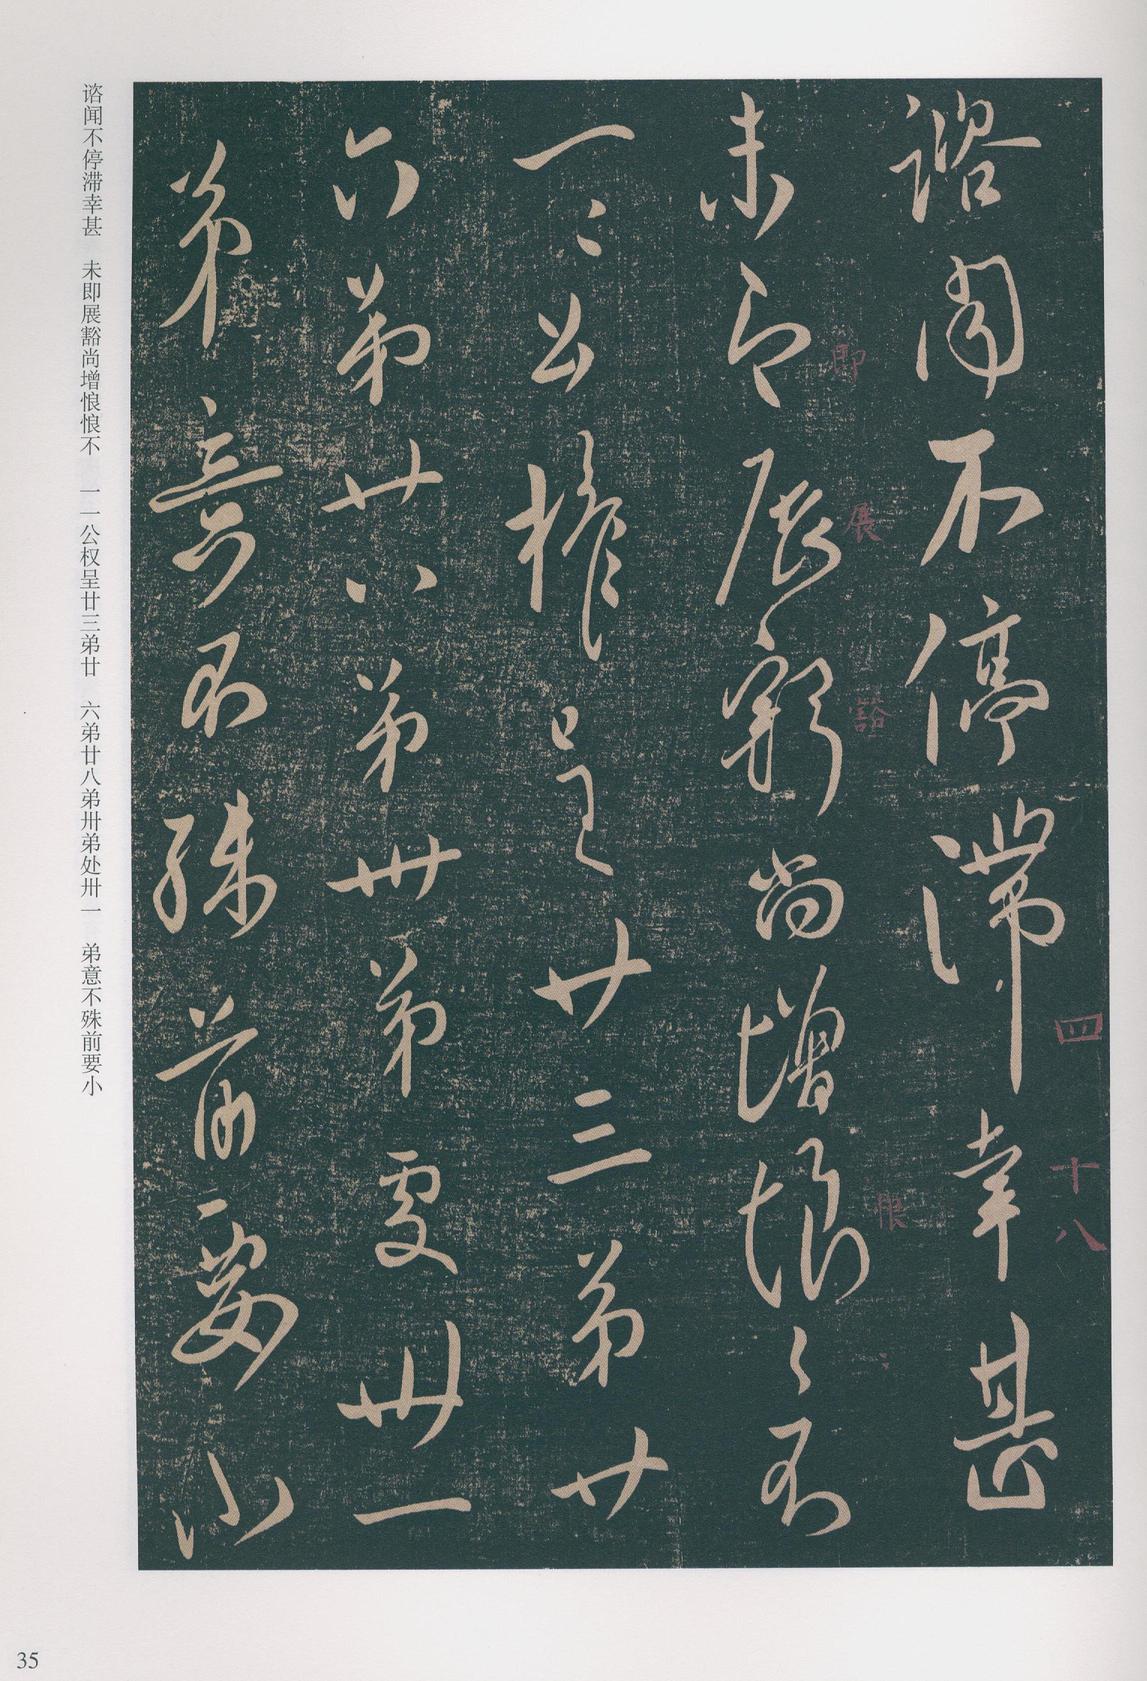 谘闻不停滞幸甚
未即展豁尚增悢〻不
一〻公权呈廿三弟廿
六弟廿八弟卅弟处卅一
弟意不殊前要小
四十八
即
展
豁
悢
谘闻不停滞幸甚　未即展豁尚增悢悢不　一一公权呈廿三弟廿　六弟廿八弟卅弟处卅一　弟意不殊前要小
35